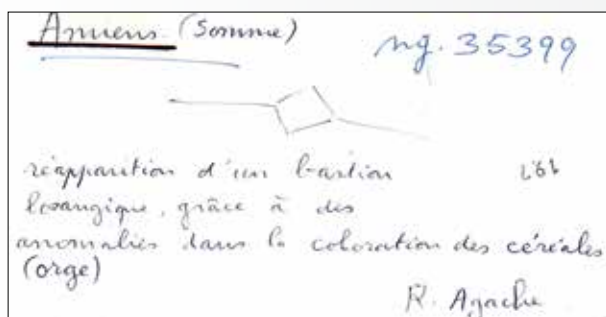 Amiens (Somme)
ng. 35399
réapparition d'un bastion
losangique, grâce à des
anomalies dans la coloration des céréales
(orge)
R. Agache